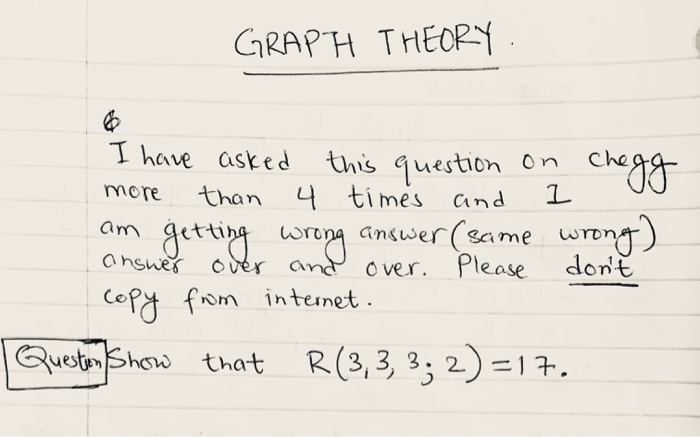 GRAPH THEORY.
I have asked this question on chegg
more than 4 times and I
am getting wrong answer (same wrong)
answer over and over. Please don't
copy from internet.
Question Show that R(3,3,3;2)=17.